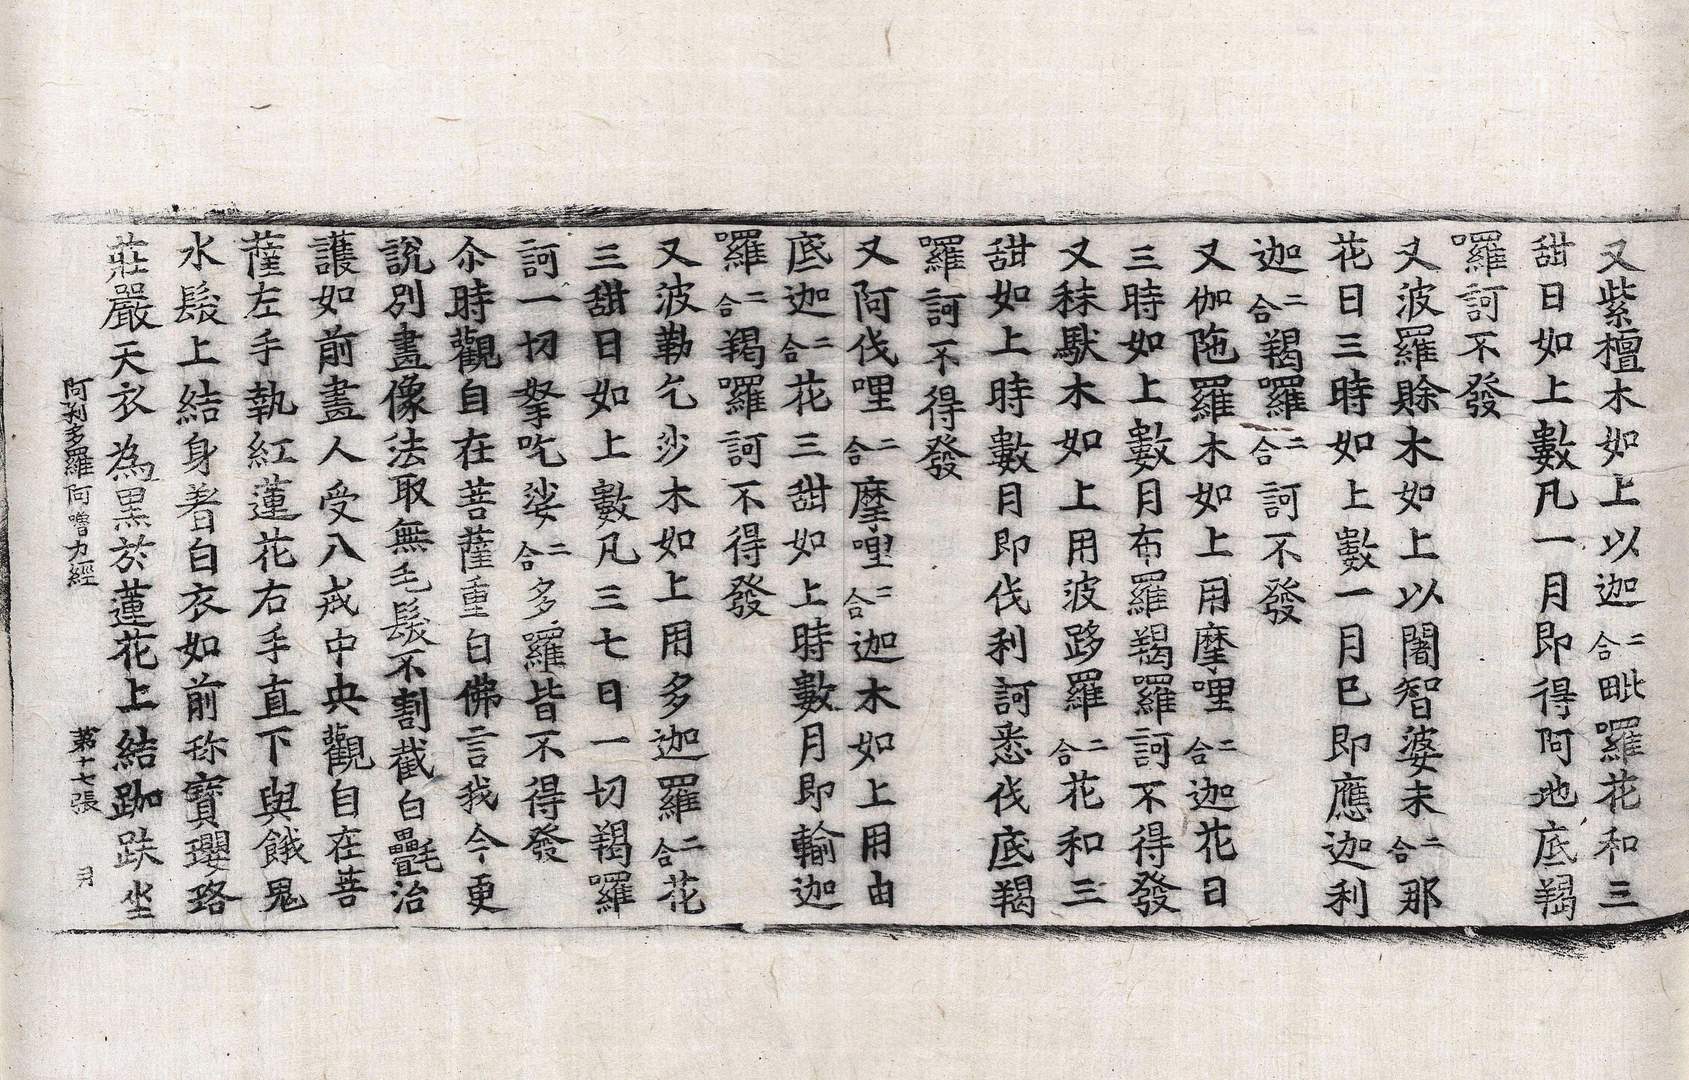 又紫檀木如上以迦二合毗羅花和三
甜日如上數凡一月即得阿地底羯
羅訶不發
又波羅賒木如上以闍智婆末二合那
花日三時如上數一月已即應迦利
迦二合羯羅二合訶不發
又伽陁羅木如上用摩哩二合迦花日
三時如上數月布羅羯羅訶不得發
又秣馱木如上用波跢羅二合花和三
甜如上時數月即伐利訶悉伐底羯
羅訶不得發
又阿伐哩二合摩哩二合迦木如上用由
底迦二合花三甜如上時數月即輸迦
羅二合羯羅訶不得發
又波勒乞沙木如上用多迦羅二合花
三甜日如上數凡三七日一切羯羅
訶一切拏吃娑二合多羅皆不得發
尒時觀自在菩薩重白佛言我今更
說別畫像法取無毛髮不割截白㲲治
護如前畫人受八戒中央觀自在菩
薩左手執紅蓮花右手直下與餓鬼
水髮上結身著白衣如前称寶瓔珞
莊嚴天衣為黑於蓮花上結跏趺坐
阿利多羅阿嚕力經 第十七張 月